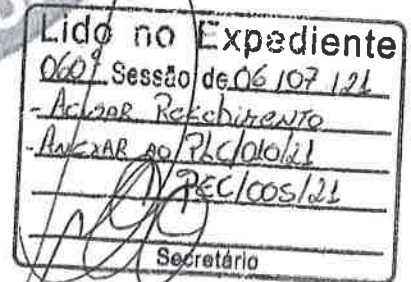 Lido no Expediente
060ª Sessão de 06/07/21
- Acusar Recebimento
- Anexar ao PLC/010/21
PEC/005/21
Secretário